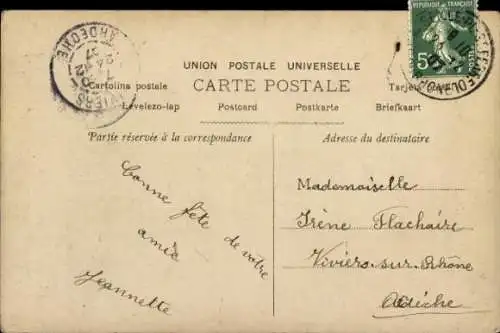 RÉPUBLIQUE FRANÇAISE
5
ARDECHE
VIVIERS
UNION POSTALE UNIVERSELLE
Cartolina postale CARTE POSTALE
Levelezo-lap Postcard Postkarte Briefkaart
Partie réservée à la correspondance
Adresse du destinataire
Bonne fête de votre
amie
Jeannette
Mademoiselle
Irène Flachaire
Viviers-sur-Rhône
Ardèche